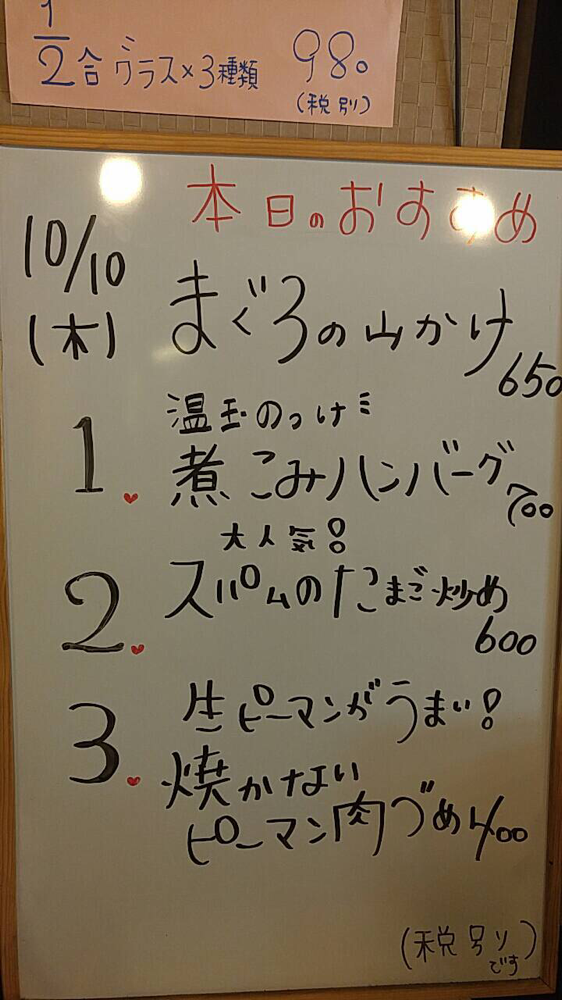 1/2合グラス×3種類 980
(税別)
本日のおすすめ
10/10
(木)
まぐろの山かけ
650
温玉のっけ
1.
煮こみハンバーグ
700
大人気!
2.
スパムのたまご炒め
600
生ピーマンがうまい!
3.
焼かない
ピーマン肉づめ 400
(税別)
です